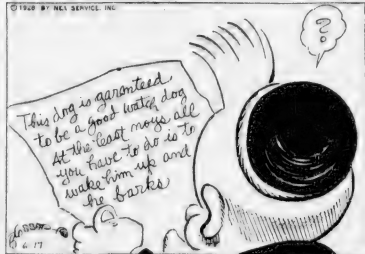 © 1928 BY NEA SERVICE, INC.
?
This dog is garanteed
to be a good watch dog
At the least noys all
you have to do is to
wake him up and
he barks
6-17